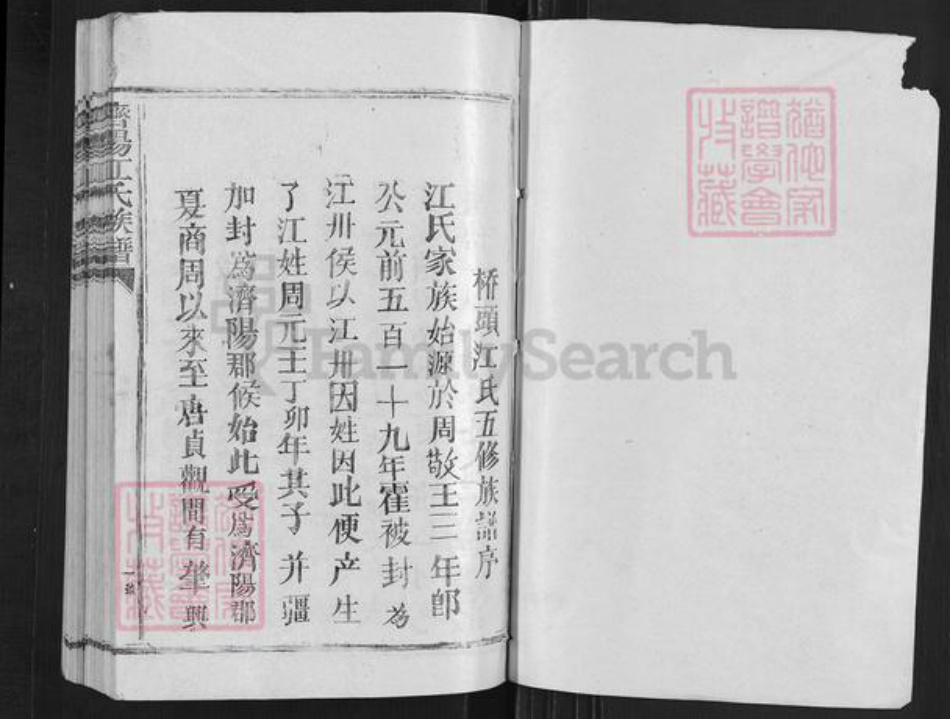 桥頭江氏五修族譜序
江氏家族始源於周敬王三年卽
公元前五百一十九年霍被封為
江卅侯以江卅因姓因此便产生
了江姓周元王丁卯年其子并疆
加封爲濟陽郡候始此受爲濟陽郡
夏商周以來至唐貞觀間有肇興
濟陽江氏族譜
FamilySearch